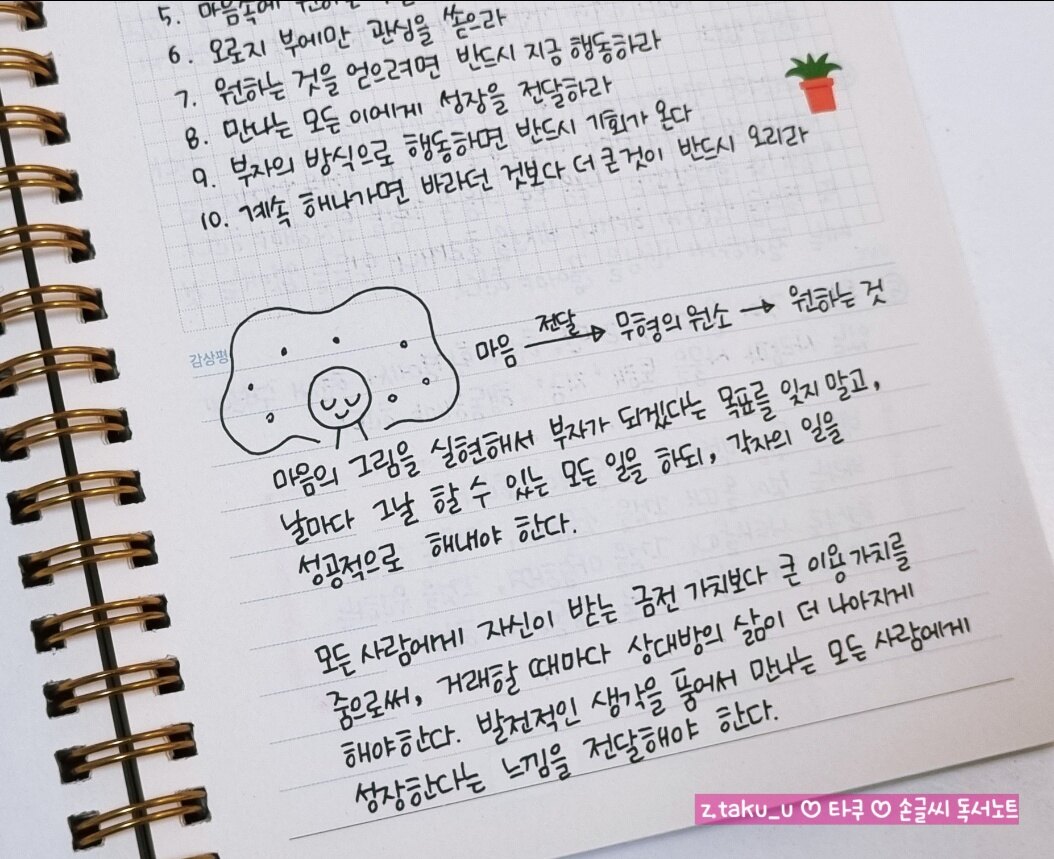 5. 마음속에
6. 오로지 부에만 관심을 쏟으라
7. 원하는 것을 얻으려면 반드시 지금 행동하라
8. 만나는 모든 이에게 성장을 전달하라
9. 부자의 방식으로 행동하면 반드시 기회가 온다
10. 계속 해나가면 바라던 것보다 더 큰 것이 반드시 오리라
감상평
마음 전달→ 무형의 원소 → 원하는 것
마음의 그림을 실현해서 부자가 되겠다는 목표를 잊지 말고,
날마다 그날 할 수 있는 모든 일을 하되, 각자의 일을
성공적으로 해내야 한다.
모든 사람에게 자신이 받는 금전 가치보다 큰 이용가치를
줌으로써, 거래할 때마다 상대방의 삶이 더 나아지게
해야한다. 발전적인 생각을 품어서 만나는 모든 사람에게
성장한다는 느낌을 전달해야 한다.
z.taku_u ♡ 타쿠 ♡ 손글씨 독서노트